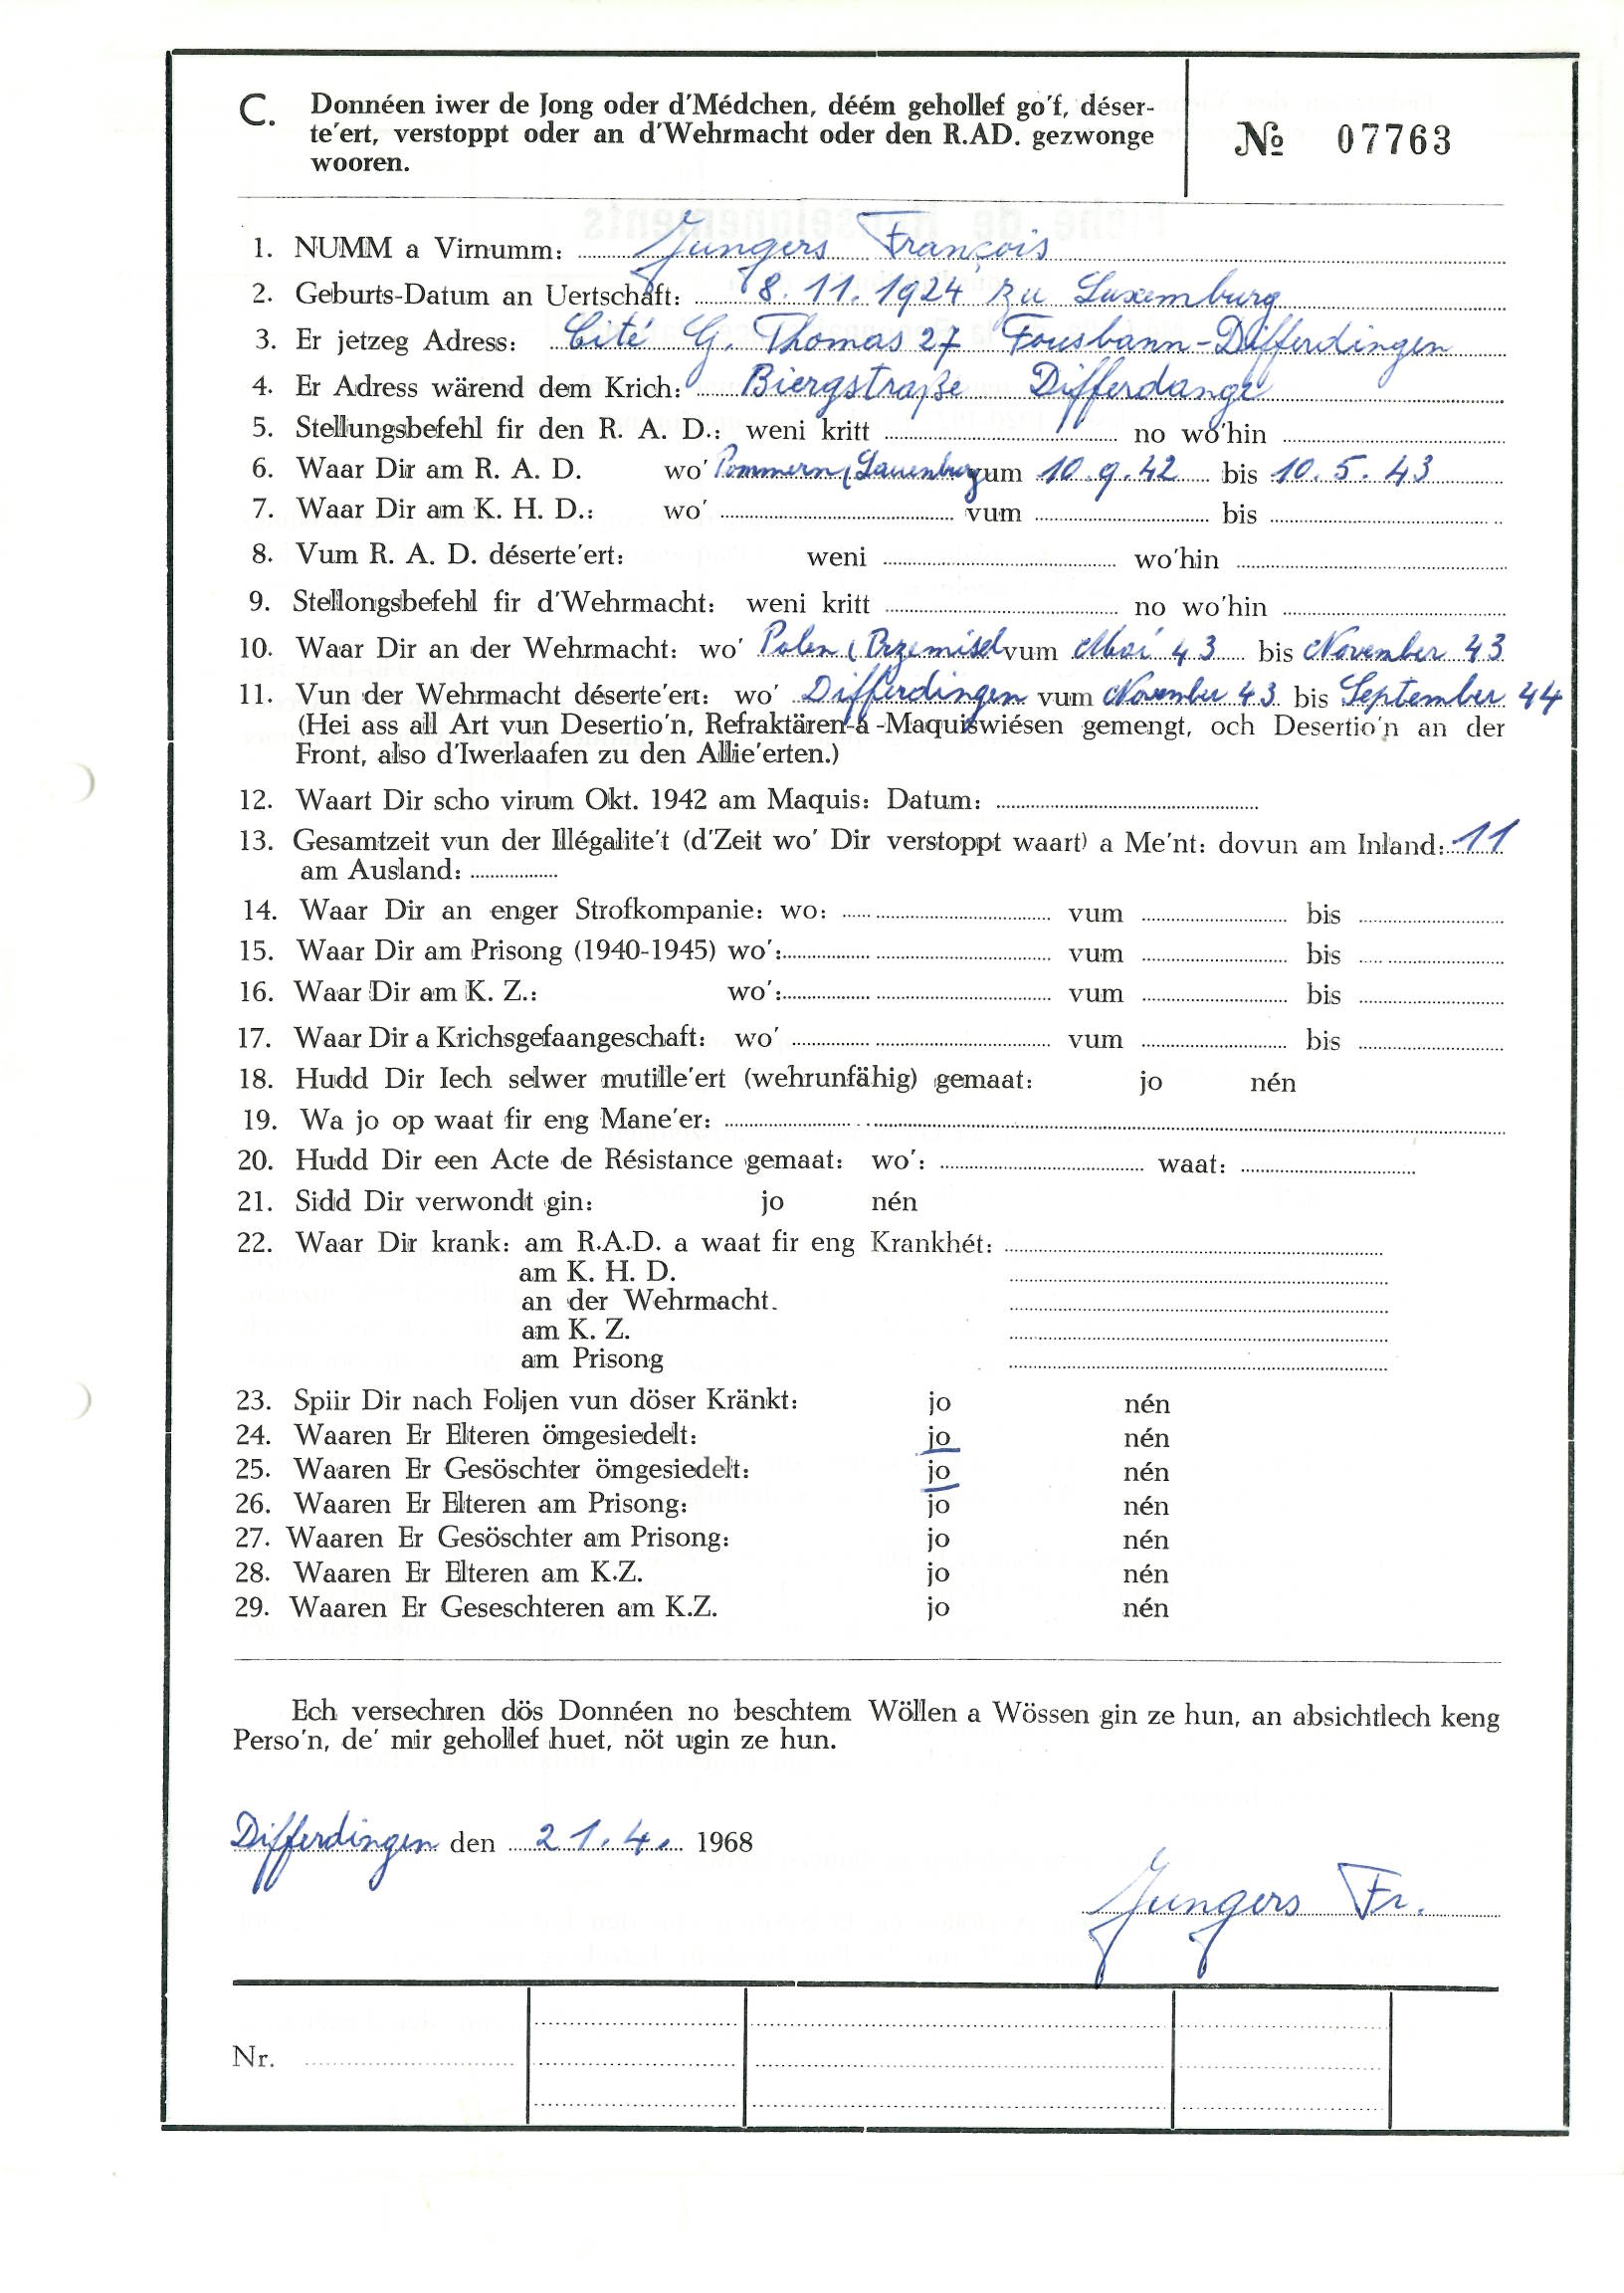 C. Donnéen iwer de Jong oder d'Médchen, déém gehollef go'f, déser-
te'ert, verstoppt oder an d'Wehrmacht oder den R.AD. gezwonge
wooren.
№ 07763
1. NUMM a Virnumm: Jungers François
2. Geburts-Datum an Uertschaft: 8. 11. 1924 zu Luxemburg
3. Er jetzeg Adress: Cité G. Thomas 27 Fousbann-Differdingen
4. Er Adress wärend dem Krich: Biergstraße Differdange
5. Stellungsbefehl fir den R. A. D.: weni kritt no wo'hin
6. Waar Dir am R. A. D. wo' Pommern (Lauenburg vum 10.9.42 bis 10.5.43
7. Waar Dir am K. H. D.: wo' vum bis
8. Vum R. A. D. déserte'ert: weni wo'hin
9. Stellongsbefehl fir d'Wehrmacht: weni kritt no wo'hin
10. Waar Dir an der Wehrmacht: wo' Polen (Przemisel vum Mai 43 bis November 43
11. Vun der Wehrmacht déserte'ert: wo' Differdingen vum November 43 bis September 44
(Hei ass all Art vun Desertio'n, Refraktären-a -Maquiswiésen gemengt, och Desertio'n an der
Front, also d'Iwerlaafen zu den Allie'erten.)
12. Waart Dir scho virum Okt. 1942 am Maquis: Datum:
13. Gesamtzeit vun der Illégalite't (d'Zeit wo' Dir verstoppt waart) a Me'nt: dovun am Inland: 11
am Ausland:
14. Waar Dir an enger Strofkompanie: wo: vum bis
15. Waar Dir am Prisong (1940-1945) wo': vum bis
16. Waar Dir am K. Z.: wo': vum bis
17. Waar Dir a Krichsgefaangeschaft: wo' vum bis
18. Hudd Dir Iech selwer mutille'ert (wehrunfähig) gemaat: jo nén
19. Wa jo op waat fir eng Mane'er:
20. Hudd Dir een Acte de Résistance gemaat: wo': waat:
21. Sidd Dir verwondt gin: jo nén
22. Waar Dir krank: am R.A.D. a waat fir eng Krankhét:
am K. H. D.
an der Wehrmacht.
am K. Z.
am Prisong
23. Spiir Dir nach Foljen vun döser Kränkt: jo nén
24. Waaren Er Elteren ömgesiedelt: jo nén
25. Waaren Er Gesöschter ömgesiedelt: jo nén
26. Waaren Er Elteren am Prisong: jo nén
27. Waaren Er Gesöschter am Prisong: jo nén
28. Waaren Er Elteren am K.Z. jo nén
29. Waaren Er Geseschteren am K.Z. jo nén
Ech versechren dös Donnéen no beschtem Wöllen a Wössen gin ze hun, an absichtlech keng
Perso'n, de' mir gehollef huet, nöt ugin ze hun.
Differdingen den 21.4. 1968
Jungers Fr.
Nr.